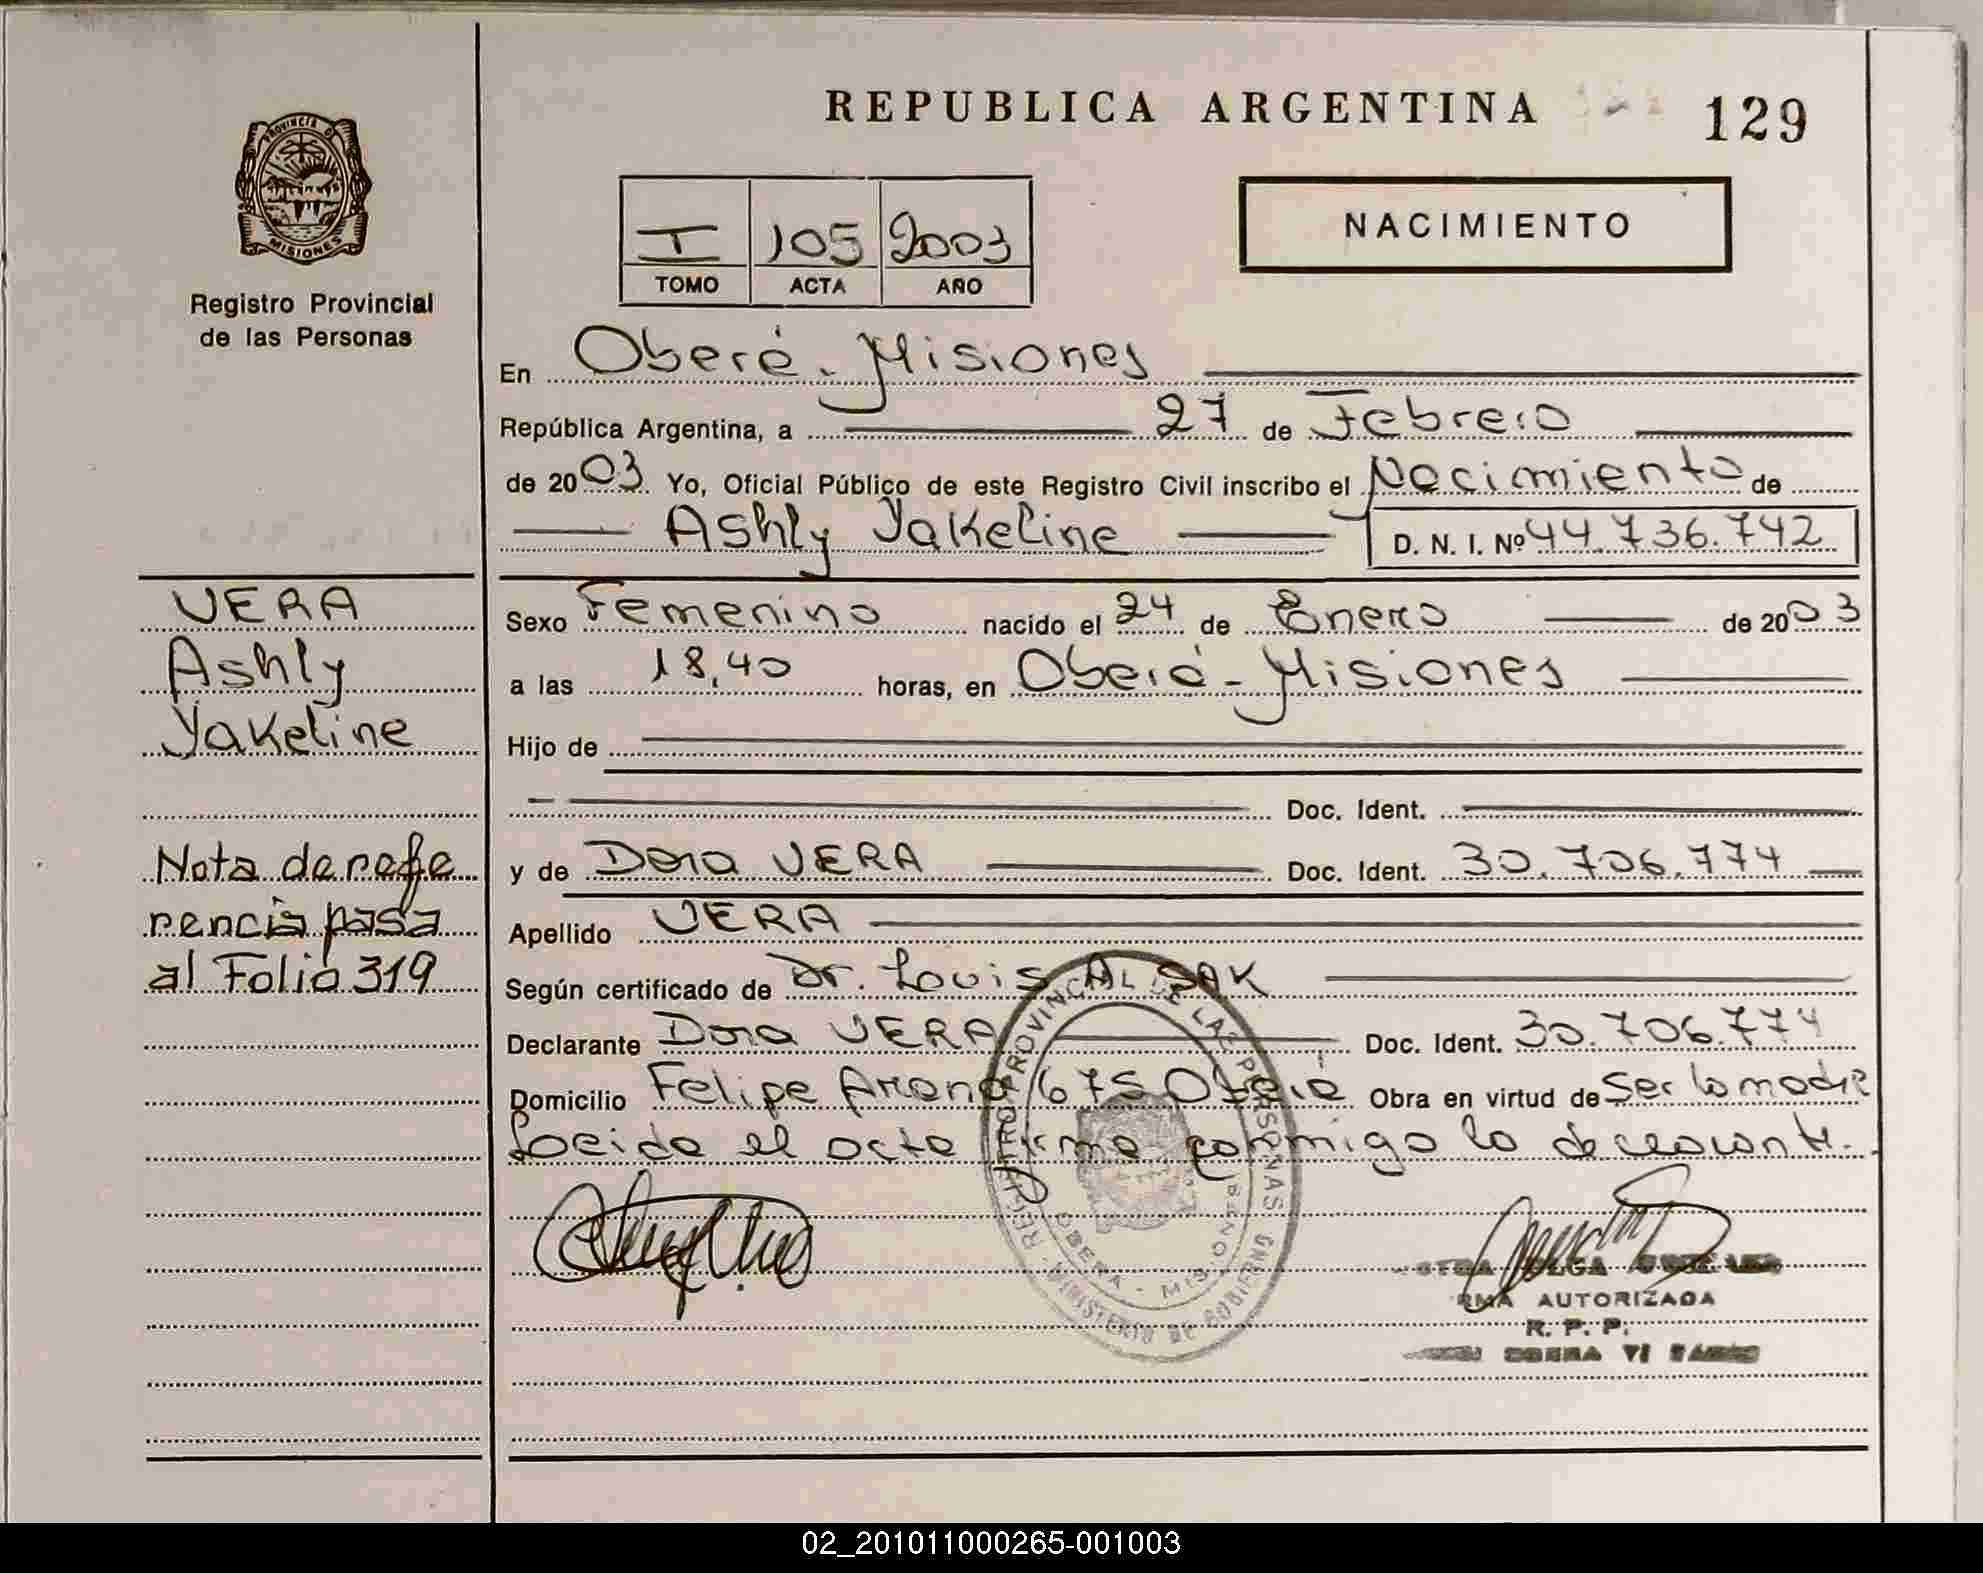 REPUBLICA ARGENTINA
129
PROVINCIA DE
MISIONES
Registro Provincial
de las Personas
I 105 2003
TOMO ACTA AÑO
NACIMIENTO
En Oberá - Misiones
República Argentina, a 27 de Febrero
de 2003 Yo, Oficial Público de este Registro Civil inscribo el Nacimiento de
Ashly Yakeline D. N. I. Nº 44.736.742
VERA
Ashly
Yakeline
Nota de refe
rencia pasa
al Folio 319
Sexo Femenino nacido el 24 de Enero de 2003
a las 18,40 horas, en Oberá - Misiones
Hijo de
Doc. Ident.
y de Dora VERA Doc. Ident. 30.706.774
Apellido VERA
Según certificado de Dr. Louis AL SAK
Declarante Dora VERA Doc. Ident. 30.706.774
Domicilio Felipe Arana 675 Oberá Obra en virtud de Ser la madre
Leida el acta firma conmigo la declarante.
REGISTRO PROVINCIAL DE LAS PERSONAS
OBERA - MISIONES
MINISTERIO DE GOBIERNO
OLGA
AUTORIZADA
R. P. P.
OBERA
02_201011000265-001003